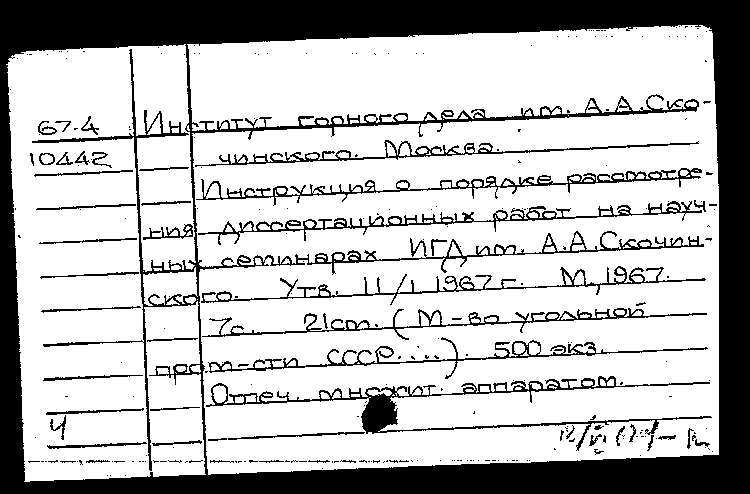 67-4 Институт горного дела им. А.А.Ско-
10442 чинского. Москва.
Инструкция о порядке рассмотре-
ния диссертационных работ на науч-
ных семинарах ИГД им. А.А.Скочин-
ского. Утв. 11/I 1967г. М., 1967.
7с. 21cm. (М-во угольной
пром-сти СССР....). 500 экз.
Отпеч. множит. аппаратом.
Ч